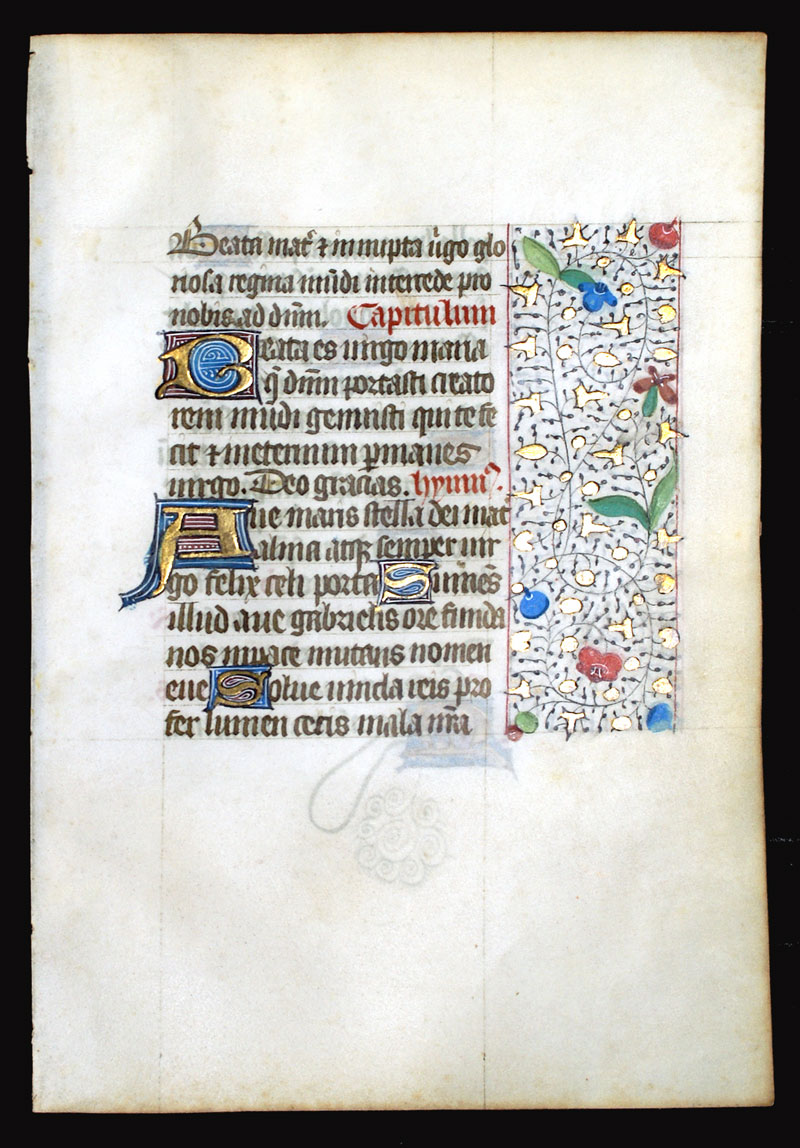 Beata mat᷑ ⁊ innupta ũgo glo
riosa regina mũdi intercede pro
nobis ad dñm. Capitulum
Beata es uirgo maria
q̃ dñm portasti creato
rem mũdi genuisti qui te fe
cit ⁊ ineternum ꝑmanes
uirgo. Deo gracias. hỹmꝰ.
Aue maris stella dei mat᷑
alma atqꝫ semper uir
go felix celi porta Sumẽs
illud aue gabrielis ore funda
nos inpace mutans nomen
eue Solue uincla reis pro
fer lumen cecis mala nr̃a